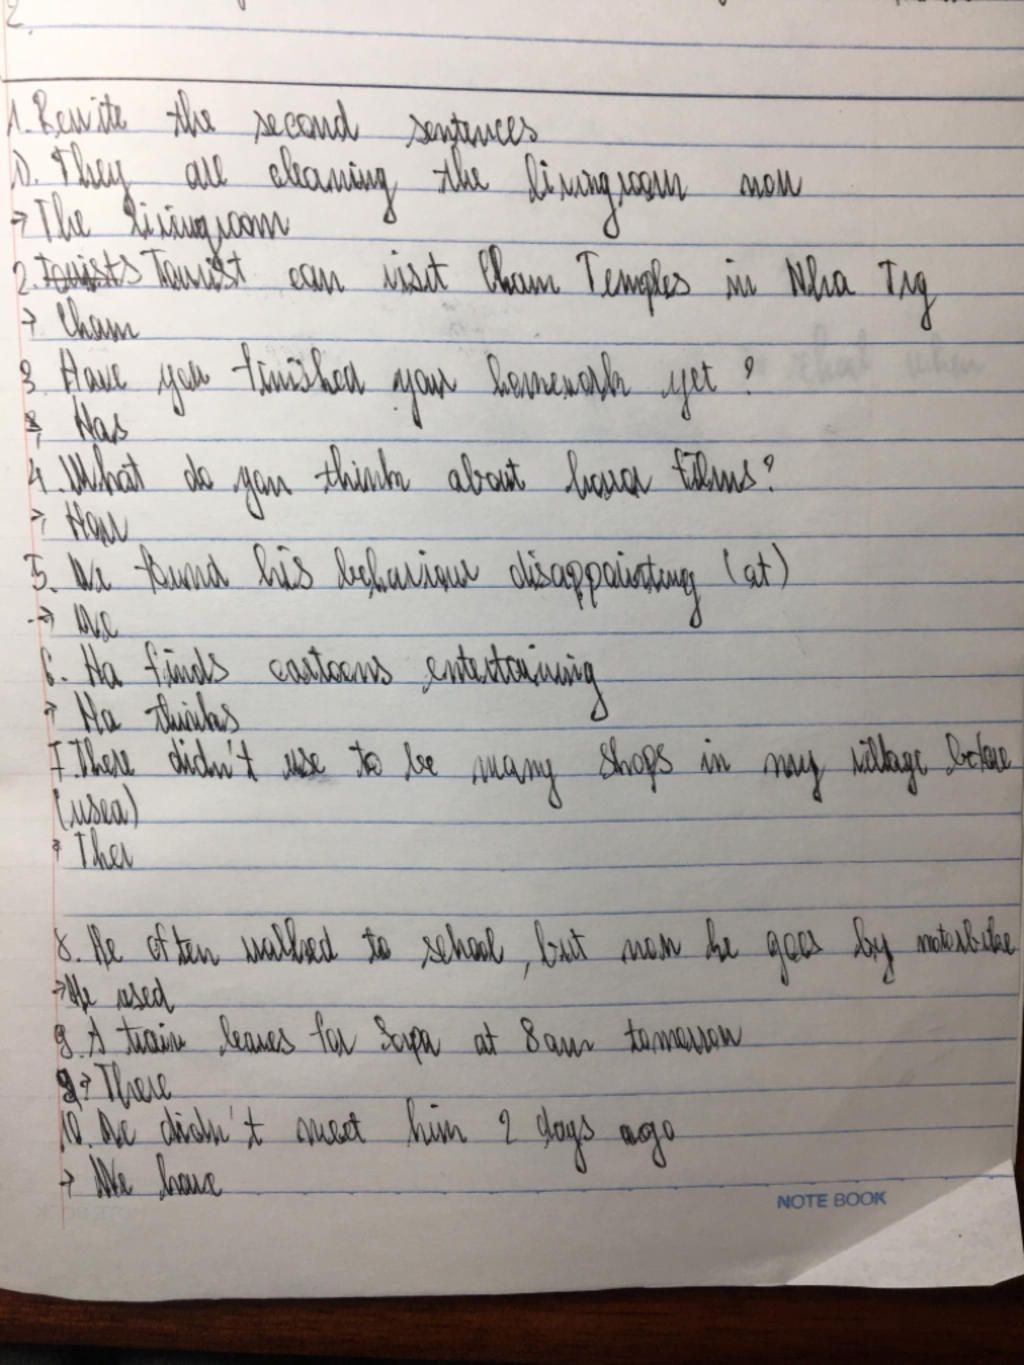 1. Rewite the second sentences
1). They are cleaning the livingroom now
→ The livingroom
2. Tourist can visit Cham Temples in Nha Trg
→ Cham
3. Have you finished your homework yet ?
→ Has
4. What do you think about horror films?
→ How
5. We found his behaviour disappointing (at)
→ We
6. Ha finds cartoons entertaining
→ Ha thinks
7. There didn't use to be many shops in my village before
(used)
→ Ther
8. He often walked to school, but now he goes by motorbike
→ He used
9. A train leaves for Sapa at 8am tomorrow
→ There
10. We didn't meet him 2 days ago
→ We have
NOTE BOOK